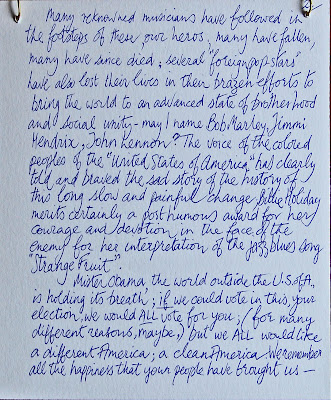 Many reknowned musicians have followed in
the footsteps of these, our heros, many have fallen,
many have since died; several "foreign pop stars"
have also lost their lives in their brazen efforts to
bring the world to an advanced state of brotherhood
and social unity - may I name Bob Marley, Jimmi
Hendrix, John Lennon? The voice of the colored
peoples of the "United States of America" has clearly
told and braved the sad story of the history of
this long slow and painful change. Billie Holiday
merits certainly a posthumous award for her
courage and devotion in the face of the
enemy for her interpretation of the jazz, blues song
"Strange Fruit".
Mister Obama, the world outside the U.S. of A.
is holding its breath; if we could vote in this, your
election, we would ALL vote for you; (for many
different reasons, maybe,) but we ALL would like
a different America; a clean America. We remember
all the happiness that your people have brought us —